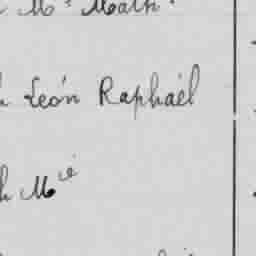 Mˢ Math
Léon Raphaël
h Mⁱᵉ